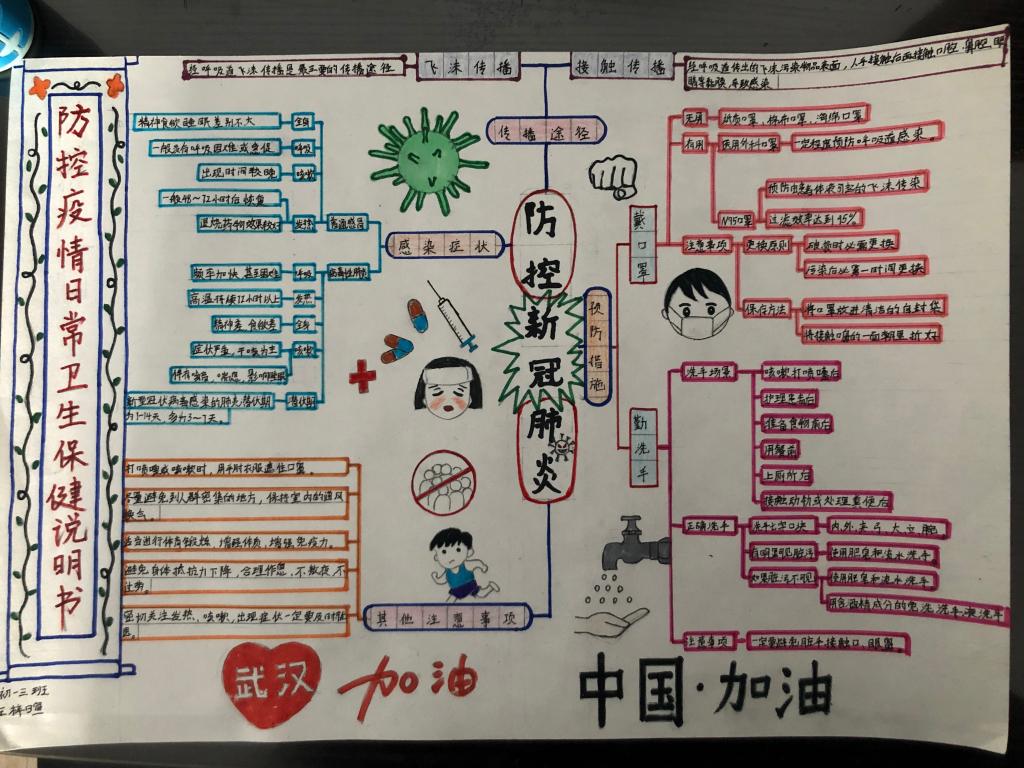 防控疫情日常卫生保健说明书
初一三班
防控新冠肺炎
传播途径
飞沫传播
经呼吸道飞沫传播是最主要的传播途径
接触传播
感染症状
普通感冒
全身
精神食欲睡眠差别不大
呼吸
一般没有呼吸困难或急促
咳嗽
出现时间较晚
发热
一般48~72小时后恢复
退烧药物效果较好
病毒性肺炎
呼吸
频率加快,甚至困难
发热
高温持续72小时以上
全身
精神差,食欲差
咳嗽
症状严重,干咳为主
伴有喉音,喘息,影响睡眠
潜伏期
新型冠状病毒感染的肺炎潜伏期
为1-14天,多为3~7天。
预防措施
戴口罩
无用
纸质口罩,棉布口罩,海绵口罩
有用
医用外科口罩
一定程度预防呼吸道感染。
N95口罩
预防由患者体液引起的飞沫传染
过滤效率达到95%
注意事项
更换原则
破损时必需更换
污染后必第一时间更换
保存方法
将口罩放进清洁的自封袋
将接触口鼻的一面朝里折好
勤洗手
洗手场景
咳嗽打喷嚏后
护理患者后
准备食物前后
用餐前
上厕所后
接触动物或处理粪便后
正确洗手
洗手七字口诀
内,外,夹,弓,大,立,腕
有明显可见脏污
使用肥皂和流水洗手
如果脏污不可见
使用肥皂和流水洗手
用含酒精成分的免洗洗手液洗手
注意事项
一定要避免脏手接触口、眼、鼻。
其他注意事项
打喷嚏或咳嗽时,用手肘衣服遮住口鼻。
尽量避免到人群密集的地方,保持室内的通风
换气。
适当进行体育锻炼,增强体质,增强免疫力。
避免自体抵抗力下降,合理作息,不熬夜,不
过劳。
密切关注发热、咳嗽,出现症状一定要及时就
医。
武汉加油
中国·加油